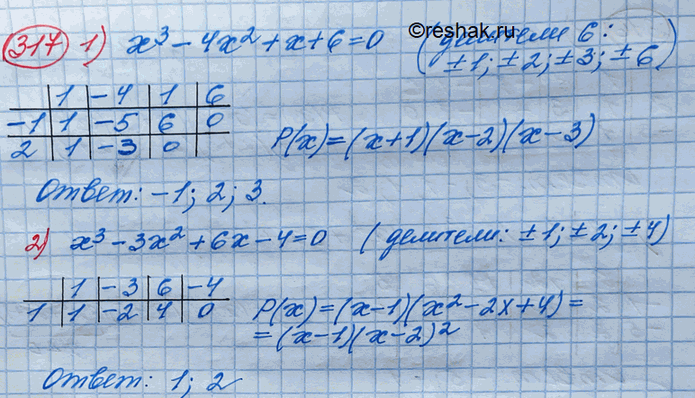 ©reshak.ru
317 1) x³ - 4x² + x + 6 = 0 (делители 6:
± 1; ± 2; ± 3; ± 6)
1 -4 1 6
-1 1 -5 6 0
2 1 -3 0
P(x) = (x+1)(x-2)(x-3)
Ответ: -1; 2; 3.
2) x³ - 3x² + 6x - 4 = 0 (делители: ± 1; ± 2; ± 4)
1 -3 6 -4
1 1 -2 4 0
P(x) = (x-1)(x² - 2x + 4) =
= (x-1)(x-2)²
Ответ: 1; 2